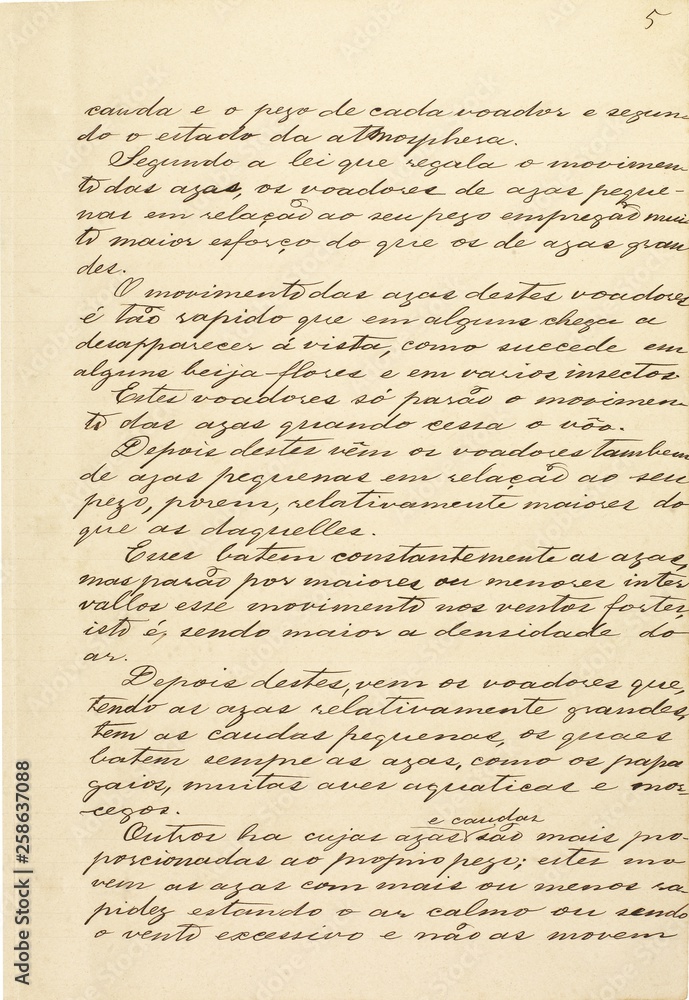 5
cauda e o pezo de cada voador e segun-
do o estado da atmosphera.
Segundo a lei que regala o movimen-
to das azas, os voadores de azas peque-
nas em relação ao seu pezo empregão mui-
to maior esforço do que os de azas gran
des.
O movimento das azas destes voadores
é tão rapido que em alguns chega a
desapparecer á vista, como succede em
alguns beija-flores e em varios insectos
Estes voadores só parão o movimen-
to das azas quando cessa o vôo.
Depois destes vêm os voadores tambem
de azas pequenas em relação ao seu
pezo, porem, relativamente maiores do
que as daquelles.
Esses batem constantemente as azas,
mas parão por maiores ou menores inter
vallos esse movimento nos ventos fortes,
isto é, sendo maior a densidade do
ar.
Depois destes, vem os voadores que,
tendo as azas relativamente grandes,
tem as caudas pequenas, os quaes
batem sempre as azas, como os papa
gaios, muitas aves aquaticas e mor-
cegos.
e caudas
Outros ha cujas azas são mais pro-
porcionadas ao proprio pezo; estes mo
vem as azas com mais ou menos ra
pidez estando o ar calmo ou sendo
o vento excessivo e não as movem
Adobe Stock | #258637088